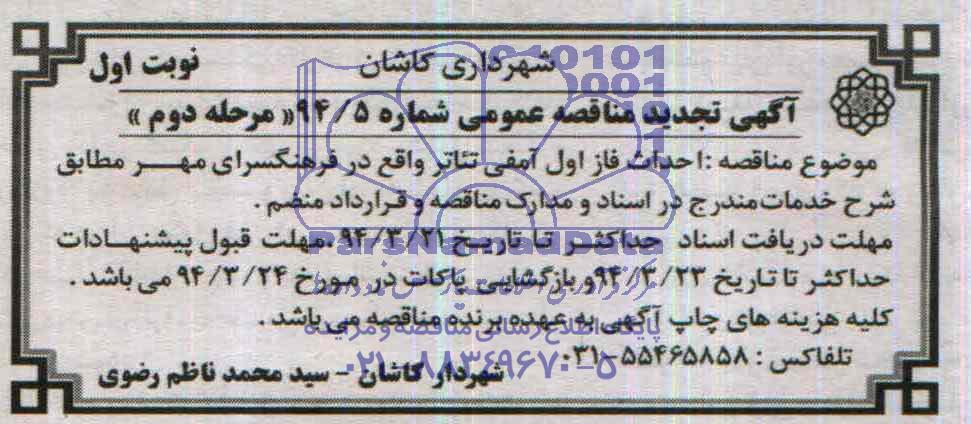 شهرداری کاشان
نوبت اول
آگهی تجدید مناقصه عمومی شماره ۹۴/۵ « مرحله دوم »
موضوع مناقصه : احداث فاز اول آمفی تئاتر واقع در فرهنگسرای مهر مطابق
شرح خدمات مندرج در اسناد و مدارک مناقصه و قرارداد منضم .
مهلت دریافت اسناد حداکثر تا تاریخ ۹۴/۳/۲۱ ،مهلت قبول پیشنهادات
حداکثر تا تاریخ ۹۴/۳/۲۳ و بازگشایی پاکات در مورخ ۹۴/۳/۲۴ می باشد .
کلیه هزینه های چاپ آگهی به عهده برنده مناقصه می باشد .
تلفاکس : ۵۵۴۶۵۸۵۸-۰۳۱
شهردار کاشان – سید محمد ناظم رضوی
ParsNamadData
پایگاه اطلاع رسانی مناقصه و مزایده
۰۲۱-۸۸۳۴۹۶۷۰-۵